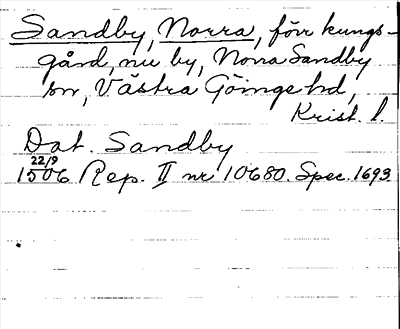 Sandby, Norra, förr kungs-
gård, nu by, Norra Sandby
sn, Västra Göinge hd,
Krist. l.
Dat. Sandby
22/9
1506 Rep. II nr 10680. Spec. 1693.